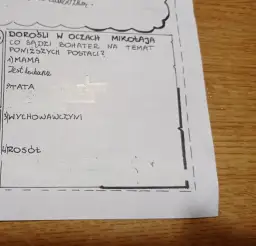 DOROŚLI W OCZACH MIKOŁAJA
CO SĄDZI BOHATER NA TEMAT
PONIŻSZYCH POSTACI?
1) MAMA
Jest
2) TATA
3) WYCHOWAWCZYNI
4) ROSÓŁ